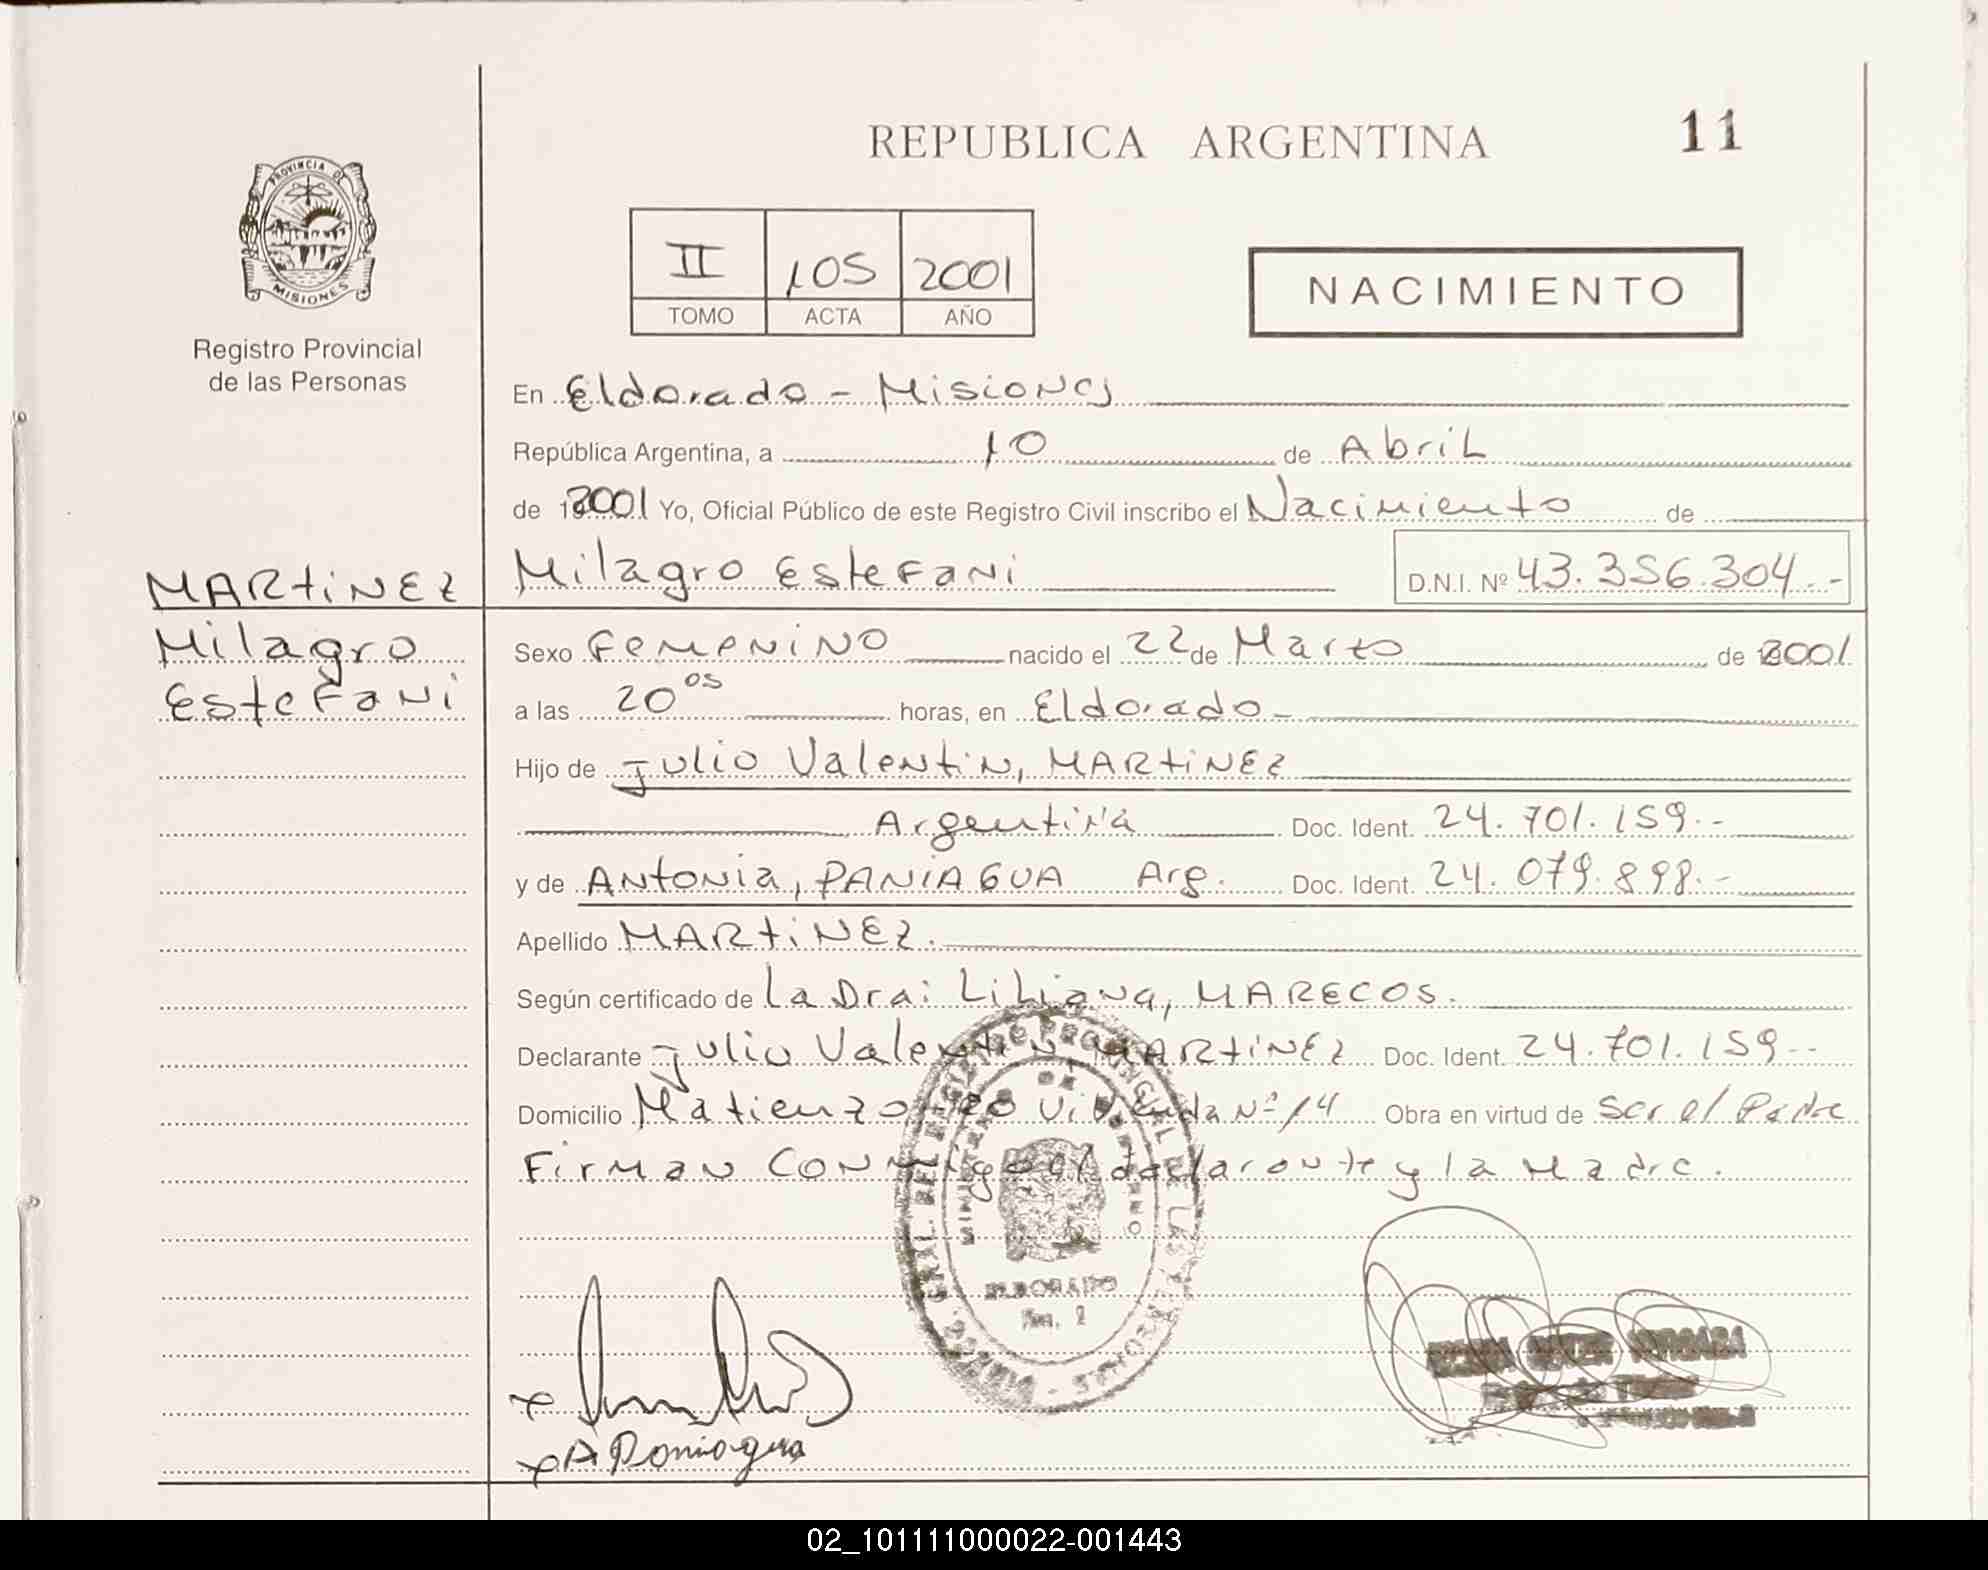 REPUBLICA ARGENTINA
11
PROVINCIA DE
MISIONES
Registro Provincial
de las Personas
II 105 2001
TOMO ACTA AÑO
NACIMIENTO
En Eldorado - Misiones
República Argentina, a 10 de Abril
de 2001 Yo, Oficial Público de este Registro Civil inscribo el Nacimiento de
Milagro Estefani D.N.I. Nº 43.356.304.-
MARTINEZ
Milagro
Estefani
Sexo Femenino nacido el 22 de Marzo de 2001
a las 20 05 horas, en Eldorado -
Hijo de Julio Valentin, MARTINEZ
Argentina Doc. Ident. 24.701.159.-
y de Antonia, PANIAGUA Arg. Doc. Ident. 24.079.898.-
Apellido MARTINEZ.
Según certificado de La Dra: Liliana, MARECOS.
Declarante Julio Valentin MARTINEZ Doc. Ident. 24.701.159.-
Domicilio Matienzo Vivienda Nº 14 Obra en virtud de Ser el Padre
Firman conmigo el declarante y la Madre.
MINISTERIO DE GOBIERNO
ELDORADO
x
x A Paniagua
02_101111000022-001443